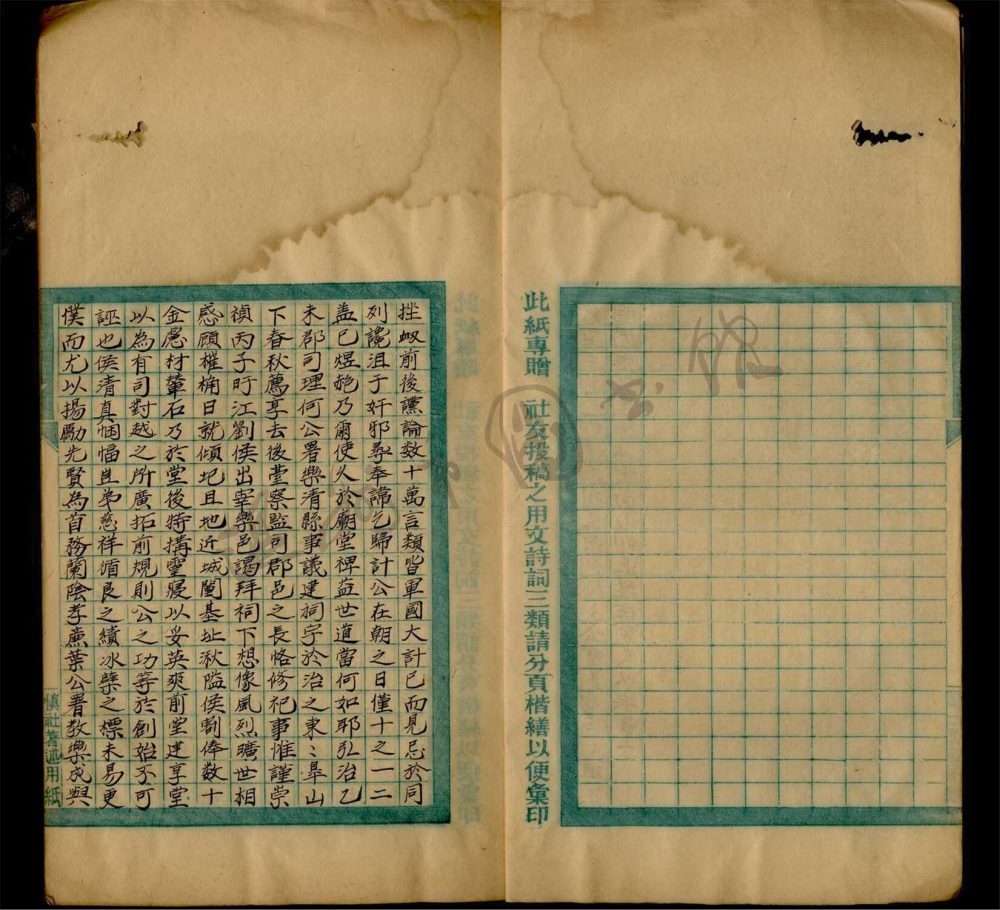 此紙專贈 社友投稿之用文詩詞三類請分頁楷繕以便彙印
挫衂前後讜論數十萬言類皆軍國大計已而見忌於同
列讒沮于奸邪尋奉諦乞歸計公在朝之日僅十之一二
蓋已煜艴乃爾使久於廟堂裨益世道當何如耶弘治乙
未郡司理何公署樂清縣事議建祠宇於治之東〻皋山
下春秋薦享去後臺察監司郡邑之長恪修祀事惟謹崇
禎丙子盱江劉侯出宰樂邑謁拜祠下想像風烈曠世相
感顧榱桷日就傾圮且地近城闉基址湫隘侯割俸數十
金材輦石乃於堂後特搆靈寢以妥英爽前堂建享堂
以為有司對越之所廣拓前規則公之功等於創始不可
誣也侯清真悃愊豈弟慈祥循良之績冰櫱之標未易更
僕而尤以揚勵先賢為首務蘭陰孝廉葉公署教樂成與
慎社著述用紙